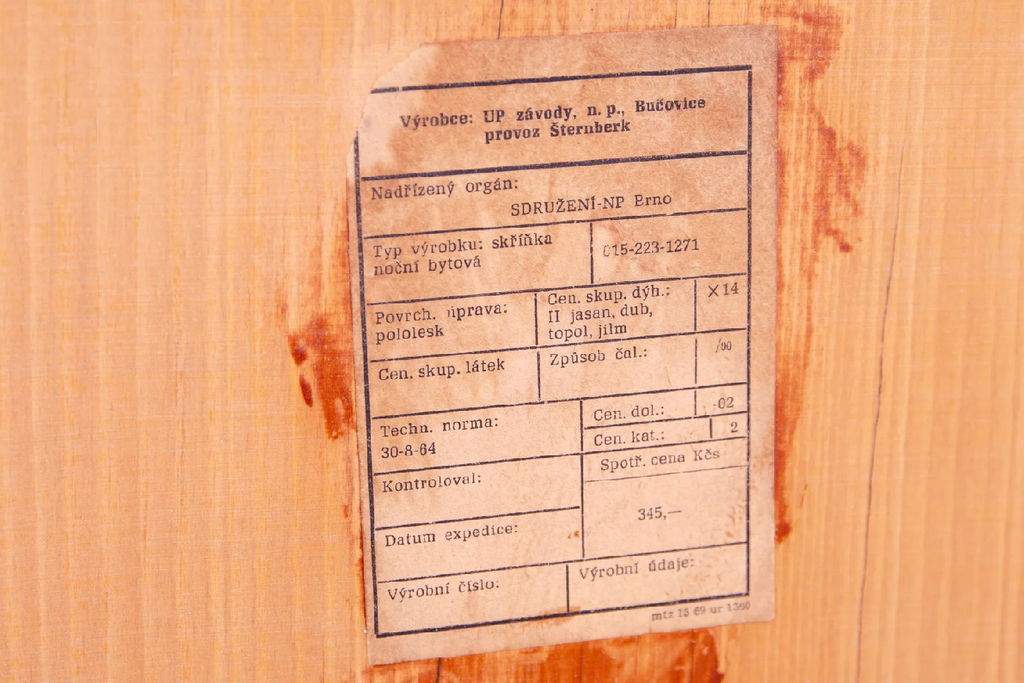 Výrobce: UP závody, n. p., Bučovice
provoz Šternberk
Nadřízený orgán:
SDRUŽENÍ-NP Brno
Typ výrobku: skříňka
noční bytová
015-223-1271
Povrch. úprava:
pololesk
Cen. skup. dýh.:
II jasan, dub,
topol, jilm
X 14
Cen. skup. látek
Způsob čal.:
/00
Techn. norma:
30-8-64
Cen. dol.:
-02
Cen. kat.:
2
Kontroloval:
Spotř. cena Kčs
345,—
Datum expedice:
Výrobní číslo:
Výrobní údaje:
mtz 15 69 ur